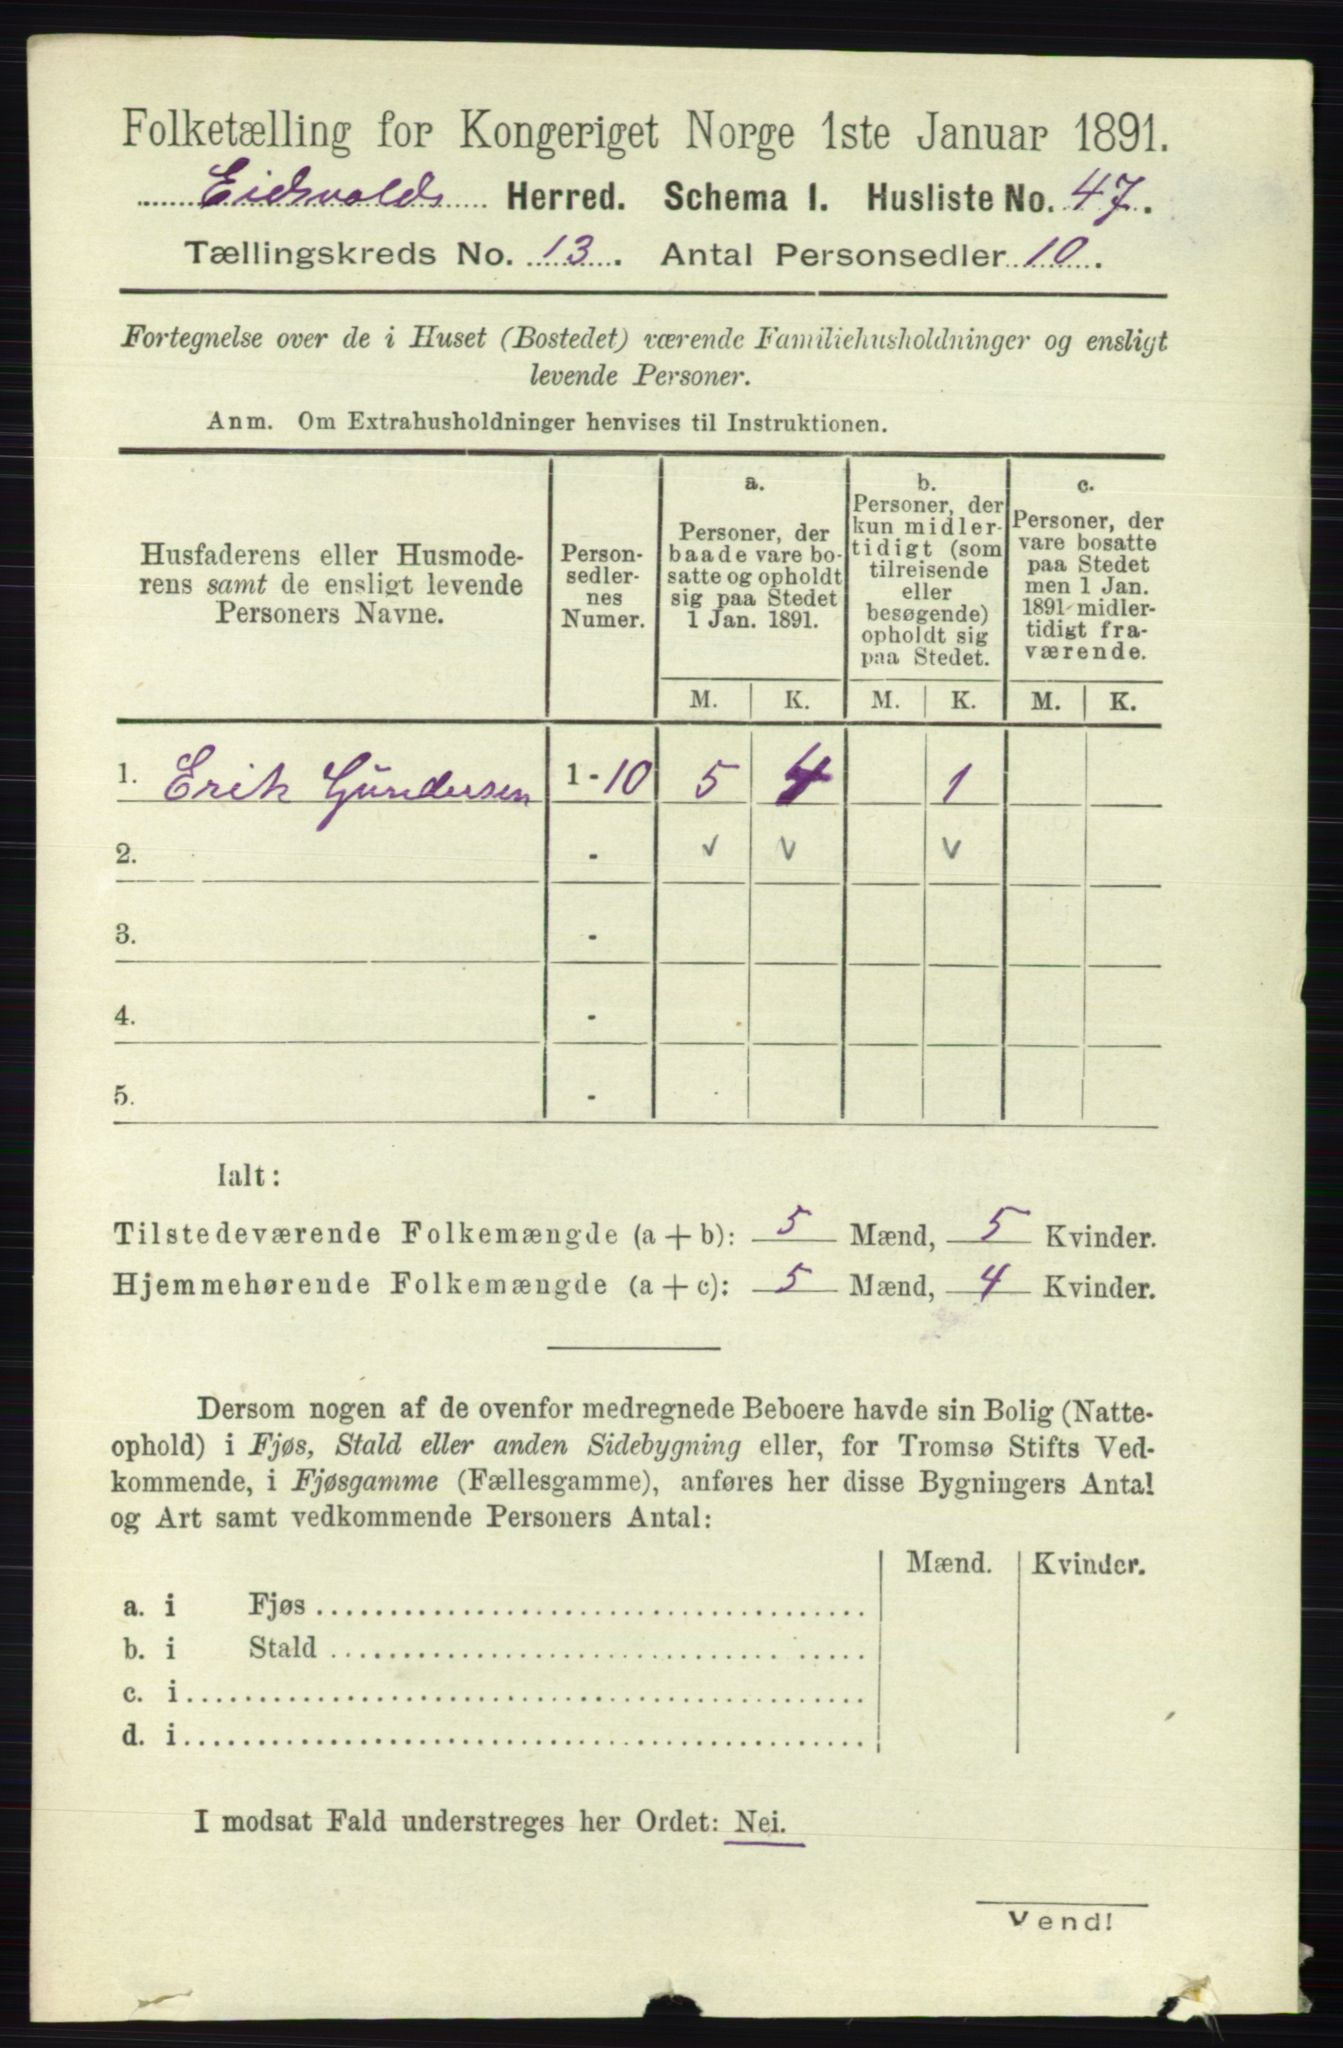 Folketælling for Kongeriget Norge 1ste Januar 1891.
Eidsvolds Herred. Schema I. Husliste No. 47.
Tællingskreds No. 13. Antal Personsedler 10.
Fortegnelse over de i Huset (Bostedet) værende Familiehusholdninger og ensligt
levende Personer.
Anm. Om Extrahusholdninger henvises til Instruktionen.
Husfaderens eller Husmode-
rens samt de ensligt levende
Personers Navne.
Person-
sedler-
nes
Numer.
a.
Personer, der
baade vare bo-
satte og opholdt
sig paa Stedet
1 Jan. 1891.
b.
Personer, der
kun midler-
tidigt (som
tilreisende
eller
besøgende)
opholdt sig
paa Stedet.
c.
Personer, der
vare bosatte
paa Stedet
men 1 Jan.
1891 midler-
tidigt fra-
værende.
M. K. M. K. M. K.
1. Erik Gundersen 1-10 5 4 1
2. - v v v
3. -
4. -
5. -
Ialt:
Tilstedeværende Folkemængde (a + b): 5 Mænd, 5 Kvinder.
Hjemmehørende Folkemængde (a + c): 5 Mænd, 4 Kvinder.
Dersom nogen af de ovenfor medregnede Beboere havde sin Bolig (Natte-
ophold) i Fjøs, Stald eller anden Sidebygning eller, for Tromsø Stifts Ved-
kommende, i Fjøsgamme (Fællesgamme), anføres her disse Bygningers Antal
og Art samt vedkommende Personers Antal:
Mænd. Kvinder.
a. i Fjøs
b. i Stald
c. i
d. i
I modsat Fald understreges her Ordet: Nei.
Vend!